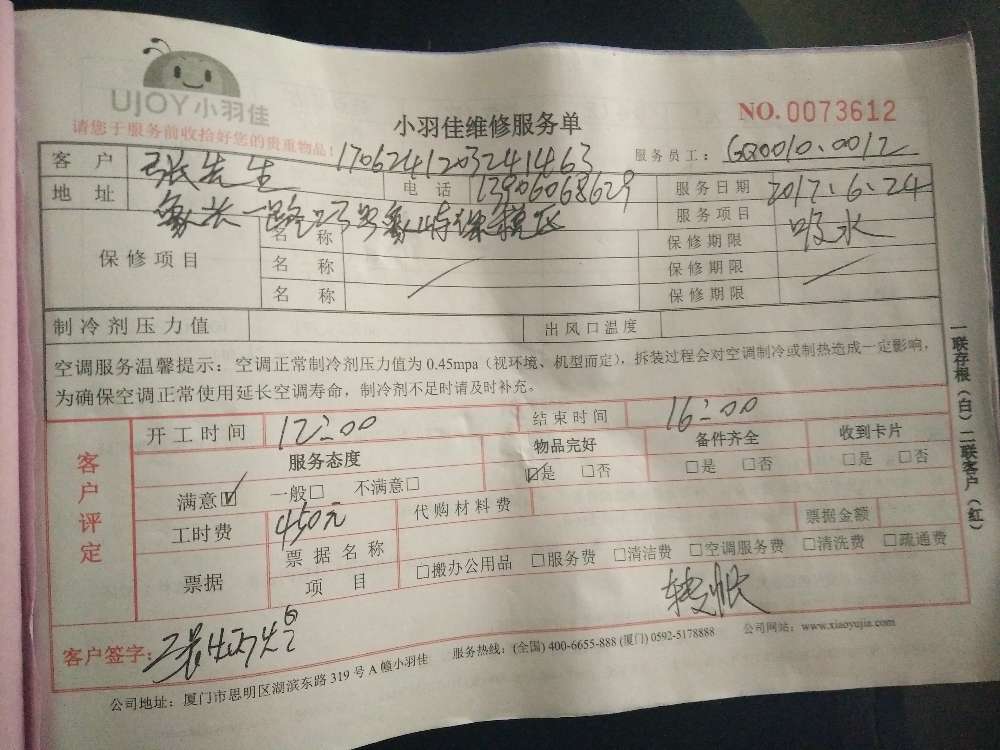 UJOY小羽佳
请您于服务前收拾好您的贵重物品!
小羽佳维修服务单
NO.0073612
客户 张先生 1706241203241463 服务员工:
地址 电话 13906068629 服务日期 2017.6.24
服务项目 吸水
保修项目 名称 保修期限
名称 保修期限
名称 保修期限
制冷剂压力值 出风口温度
空调服务温馨提示:空调正常制冷剂压力值为0.45mpa(视环境、机型而定),拆装过程会对空调制冷或制热造成一定影响,
为确保空调正常使用延长空调寿命,制冷剂不足时请及时补充。
客户评定
开工时间 12:00 结束时间 16:00
服务态度 物品完好 备件齐全 收到卡片
满意☑ 一般□ 不满意□ ☑是 □否 □是 □否 □是 □否
工时费 450元 代购材料费 票据金额
票据 票据名称 项目 □搬办公用品 □服务费 □清洁费 □空调服务费 □清洗费 □疏通费
转账
客户签字:
公司地址:厦门市思明区湖滨东路319号A幢小羽佳 服务热线:(全国)400-6655-888(厦门)0592-5178888 公司网站:www.xiaoyujia.com
一联存根(白)二联客户(红)